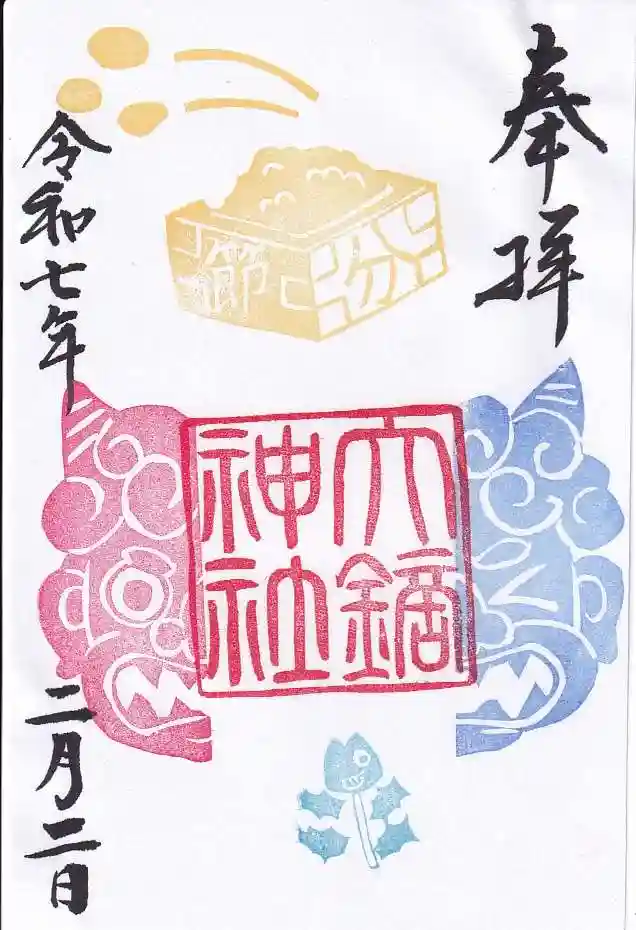 奉拝
節分
大鏑
神社
令和七年
二月二日